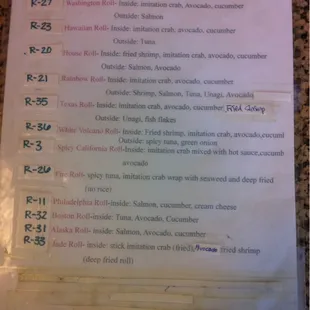 R-27 Washington Roll- Inside: imitation crab, Avocado, cucumber
Outside: Salmon
R-23 Hawaiian Roll- Inside: imitation crab, Avocado, cucumber
Outside: Tuna
R-20 House Roll- Inside: fried shrimp, imitation crab, avocado, cucumber
Outside: Salmon, Avocado
R-21 Rainbow Roll- Inside: imitation crab, avocado, cucumber
Outside: Shrimp, Salmon, Tuna, Unagi, Avocado
R-35 Texas Roll- Inside: imitation crab, avocado, cucumber, Fried Shrimp
Outside: Unagi, fish flakes
R-36 White Volcano Roll- Inside: Fried shrimp, imitation crab, avocado,cucumb
Outside: spicy tuna, green onion
R-3 Spicy California Roll-Inside: imitation crab mixed with hot sauce,cucumb
avocado
R-26 Fire Roll- spicy tuna, imitation crab wrap with seaweed and deep fried
(no rice)
R-11 Philadelphia Roll-Inside: Salmon, cucumber, cream cheese
R-32 Boston Roll-inside: Tuna, Avocado, Cucumber
R-31 Alaska Roll- inside: Salmon, Avocado, cucumber
R-33 Jade Roll- inside: stick imitation crab (fried), Avocado fried shrimp
(deep fried roll)